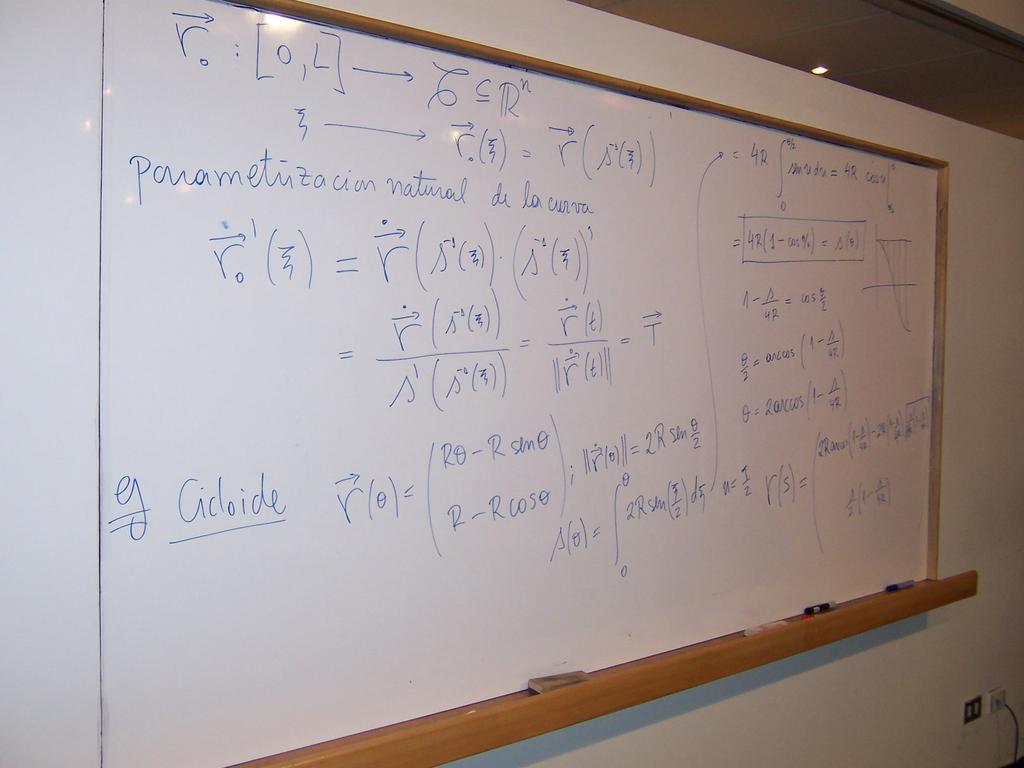 r⃗₀ : [0, L] → 𝒞 ⊆ ℝⁿ
ξ → r⃗₀(ξ) = r⃗(s⁻¹(ξ))
parametrizacion natural de la curva
r⃗₀'(ξ) = ṙ⃗(s⁻¹(ξ)) · (s⁻¹(ξ))'
= ṙ⃗(s⁻¹(ξ)) / s'(s⁻¹(ξ)) = ṙ⃗(t) / ||ṙ⃗(t)|| = T⃗
eg Cicloide r⃗(θ) = (Rθ − R senθ
R − R cosθ) ; ||ṙ⃗(θ)|| = 2R sen θ/2
s(θ) = ∫₀^θ 2R sen(ξ/2) dξ u = ξ/2
= 4R ∫₀^(θ/2) sen u du = 4R cos u
= 4R(1 − cos θ/2) = s(θ)
1 − s/4R = cos θ/2
θ/2 = arccos(1 − s/4R)
θ = 2arccos(1 − s/4R)
r(s) = (2R arccos(1 − s/4R)